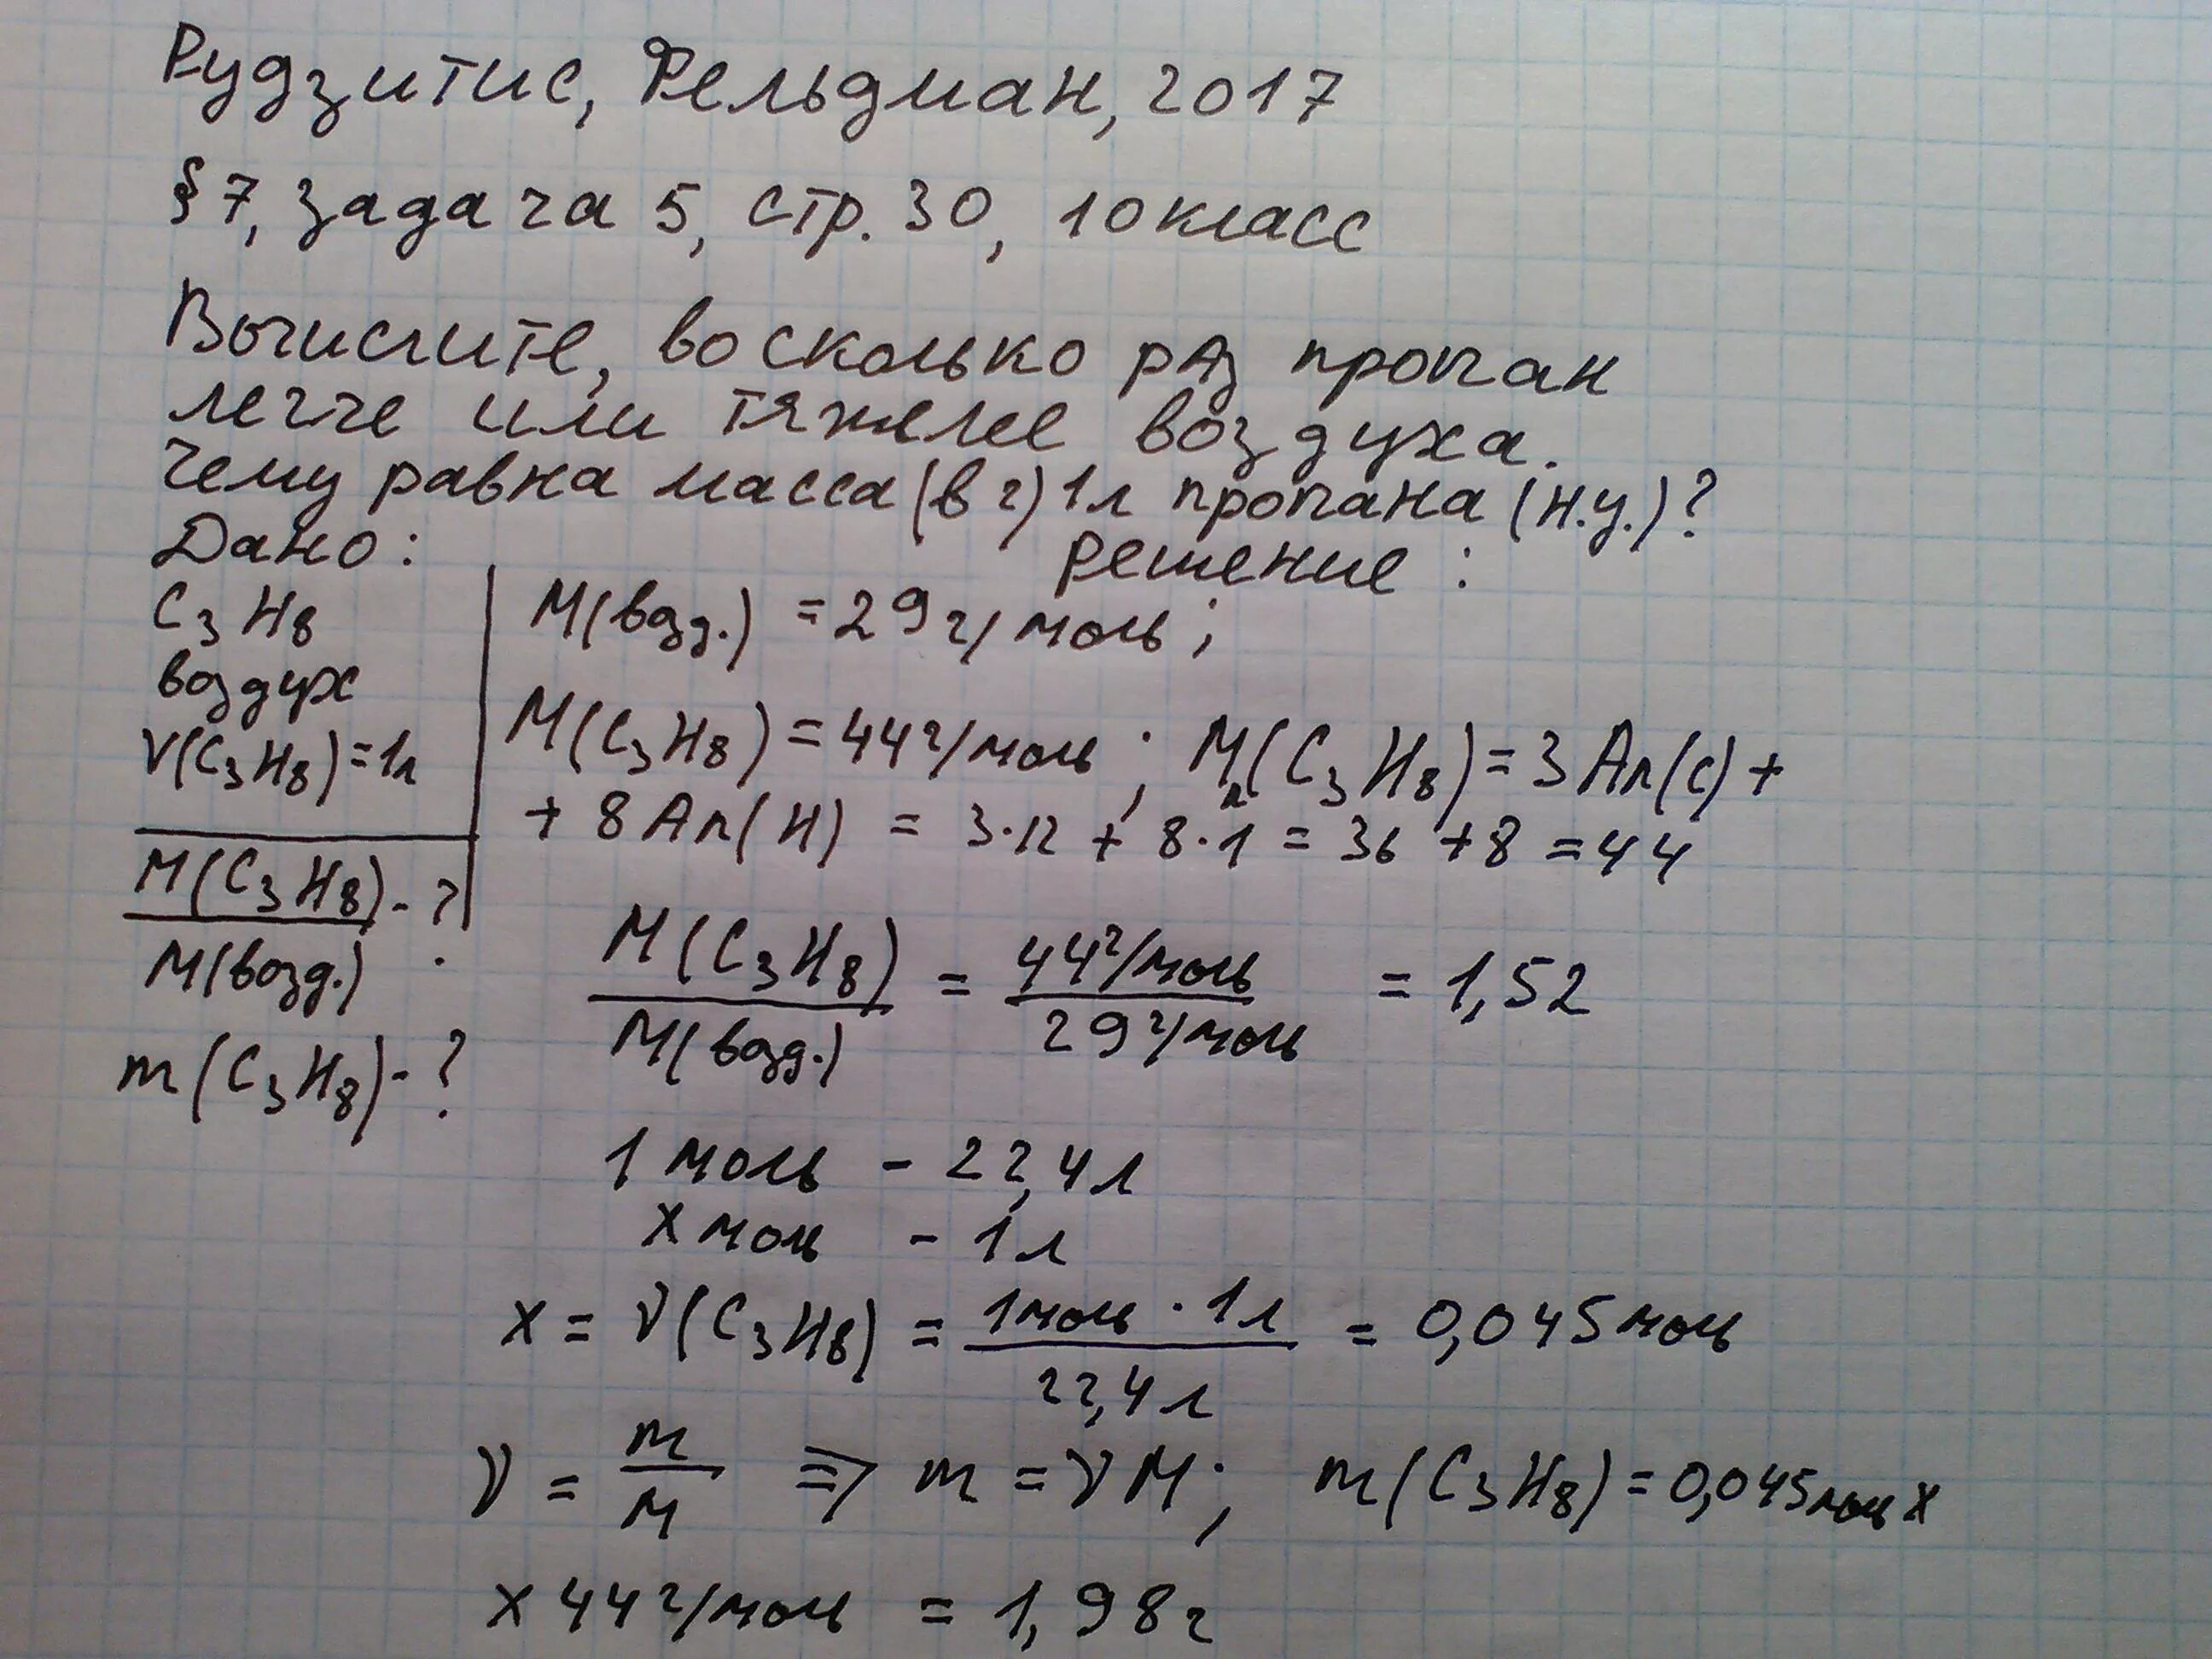 Рудзитис, Фельдман, 2017
§ 7, задача 5, стр. 30, 10 класс
Вычислите, во сколько раз пропан
легче или тяжелее воздуха.
Чему равна масса (в г) 1 л пропана (н.у.)?
Дано:
Решение:
C₃H₈
воздух
V(C₃H₈) = 1л
M(C₃H₈)
M(возд.)
- ?
m(C₃H₈) - ?
M(возд.) = 29 г/моль;
M(C₃H₈) = 44 г/моль; Mr(C₃H₈) = 3Ar(C) +
+ 8Ar(H) = 3·12 + 8·1 = 36 + 8 = 44
M(C₃H₈) / M(возд.) = 44 г/моль / 29 г/моль = 1,52
1 моль - 22,4 л
x моль - 1 л
x = ν(C₃H₈) = 1 моль · 1 л / 22,4 л = 0,045 моль
ν = m / M ⇒ m = νM; m(C₃H₈) = 0,045 моль ×
× 44 г/моль = 1,98 г